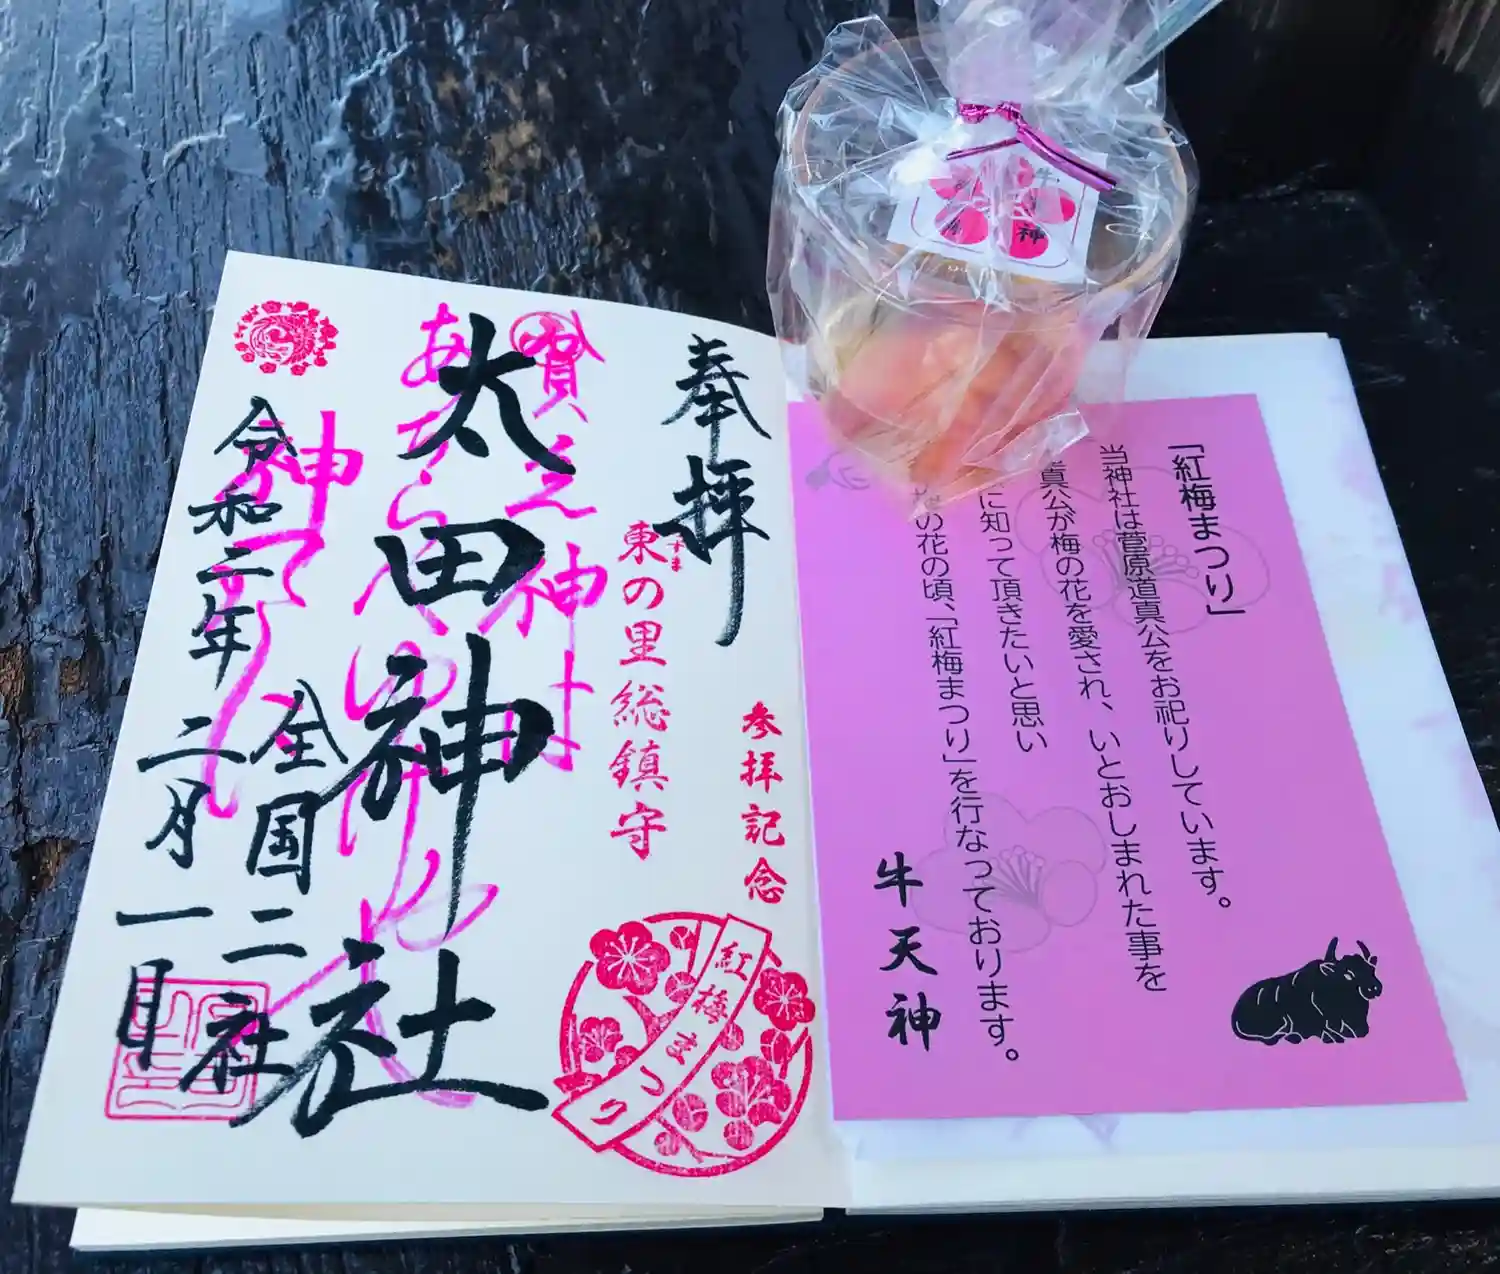 奉拝
参拝記念
東の里総鎮守
太田神社
全国二社
令和二年二月一日
紅梅まつり
「紅梅まつり」
当神社は菅原道真公をお祀りしています。
真公が梅の花を愛され、いとおしまれた事を
に知って頂きたいと思い
の花の頃、「紅梅まつり」を行なっております。
牛天神
神